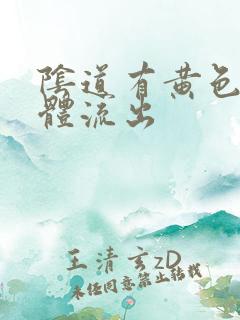 陰道有黃色
體流出
王清玄zD
未经同意禁止转载